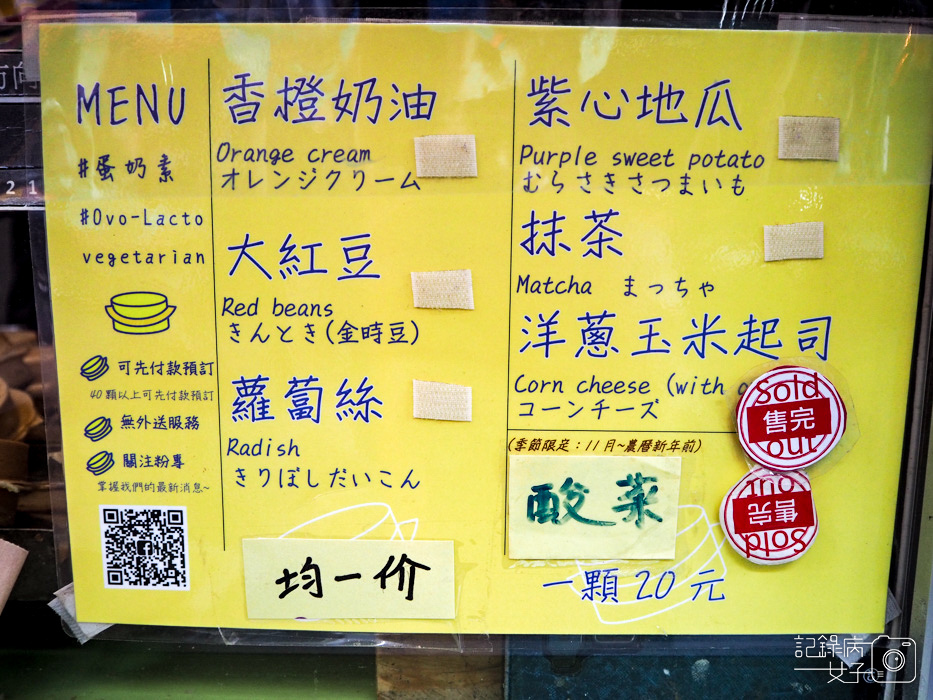 MENU
#蛋奶素
#Ovo-Lacto
vegetarian
可先付款預訂
40顆以上可先付款預訂
無外送服務
關注粉專
掌握我們的最新消息~
香橙奶油
Orange cream
オレンジクリーム
大紅豆
Red beans
きんとき(金時豆)
蘿蔔絲
Radish
きりぼしだいこん
均一价
紫心地瓜
Purple sweet potato
むらさきさつまいも
抹茶
Matcha まっちゃ
洋蔥玉米起司
Corn cheese (with
コーンチーズ
Sold
售完
out
(季節限定:11月~農曆新年前)
酸菜
Sold
售完
out
一顆20元
21
記錄病
女子